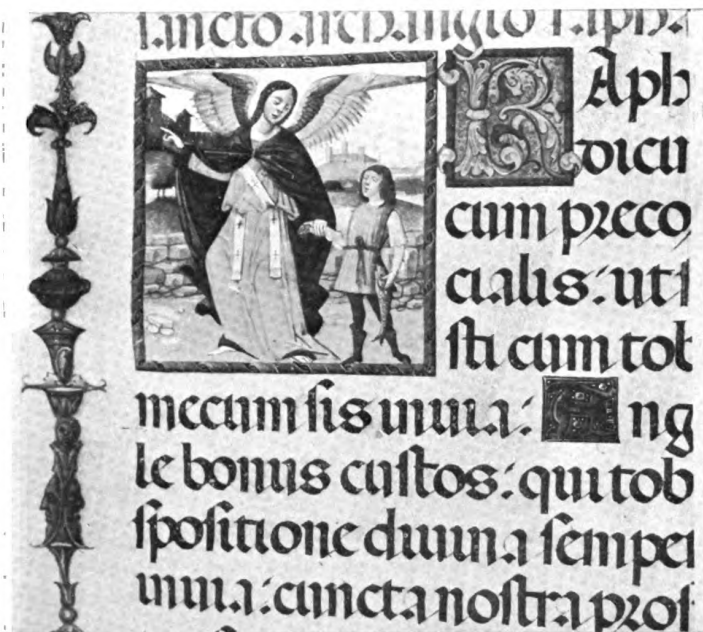 sancto archanglo rapha
Raph
dicu
cum preco
cialis: ut i
sti cum tob
mecum sis in uia: Ang
le bonus custos: qui tob
spositione diuina semper
in uia: cuncta nostra prof